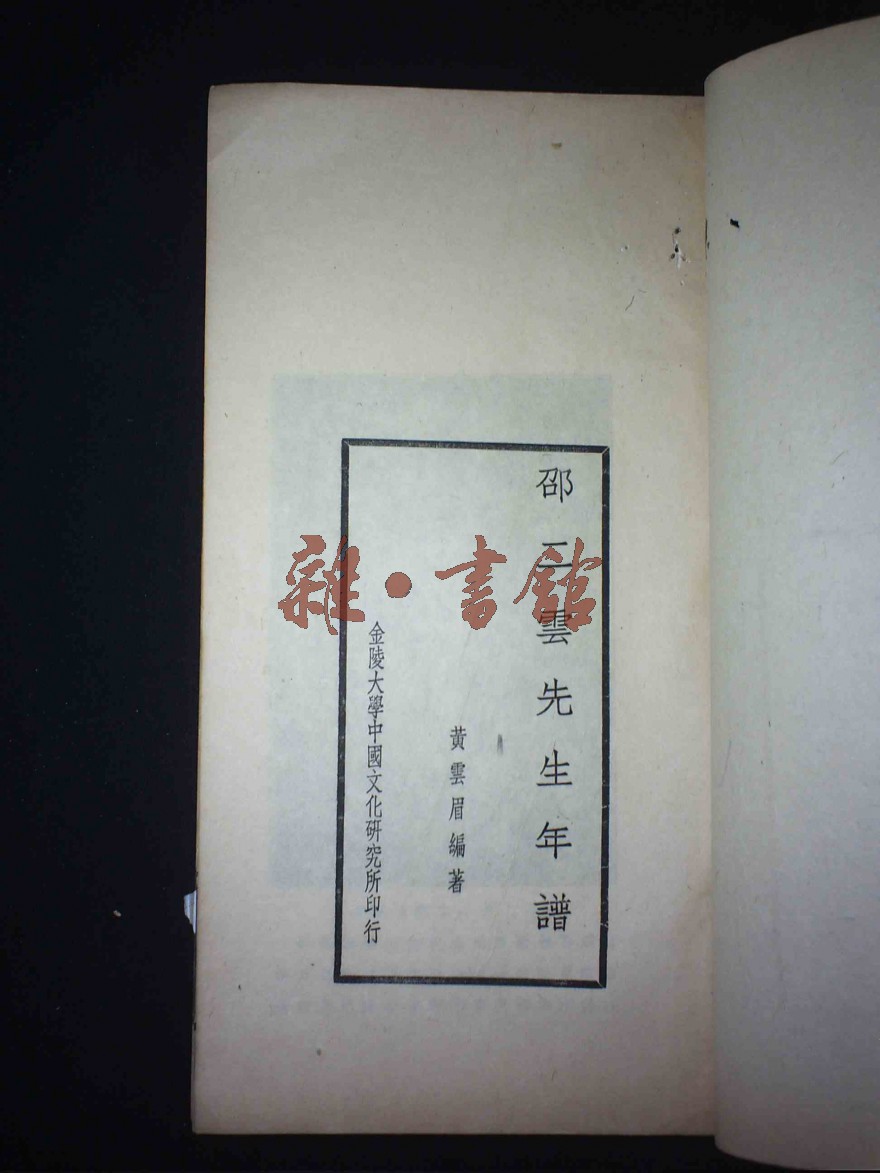 邵二雲先生年譜
黃雲眉編著
金陵大學中國文化研究所印行
雜·書館